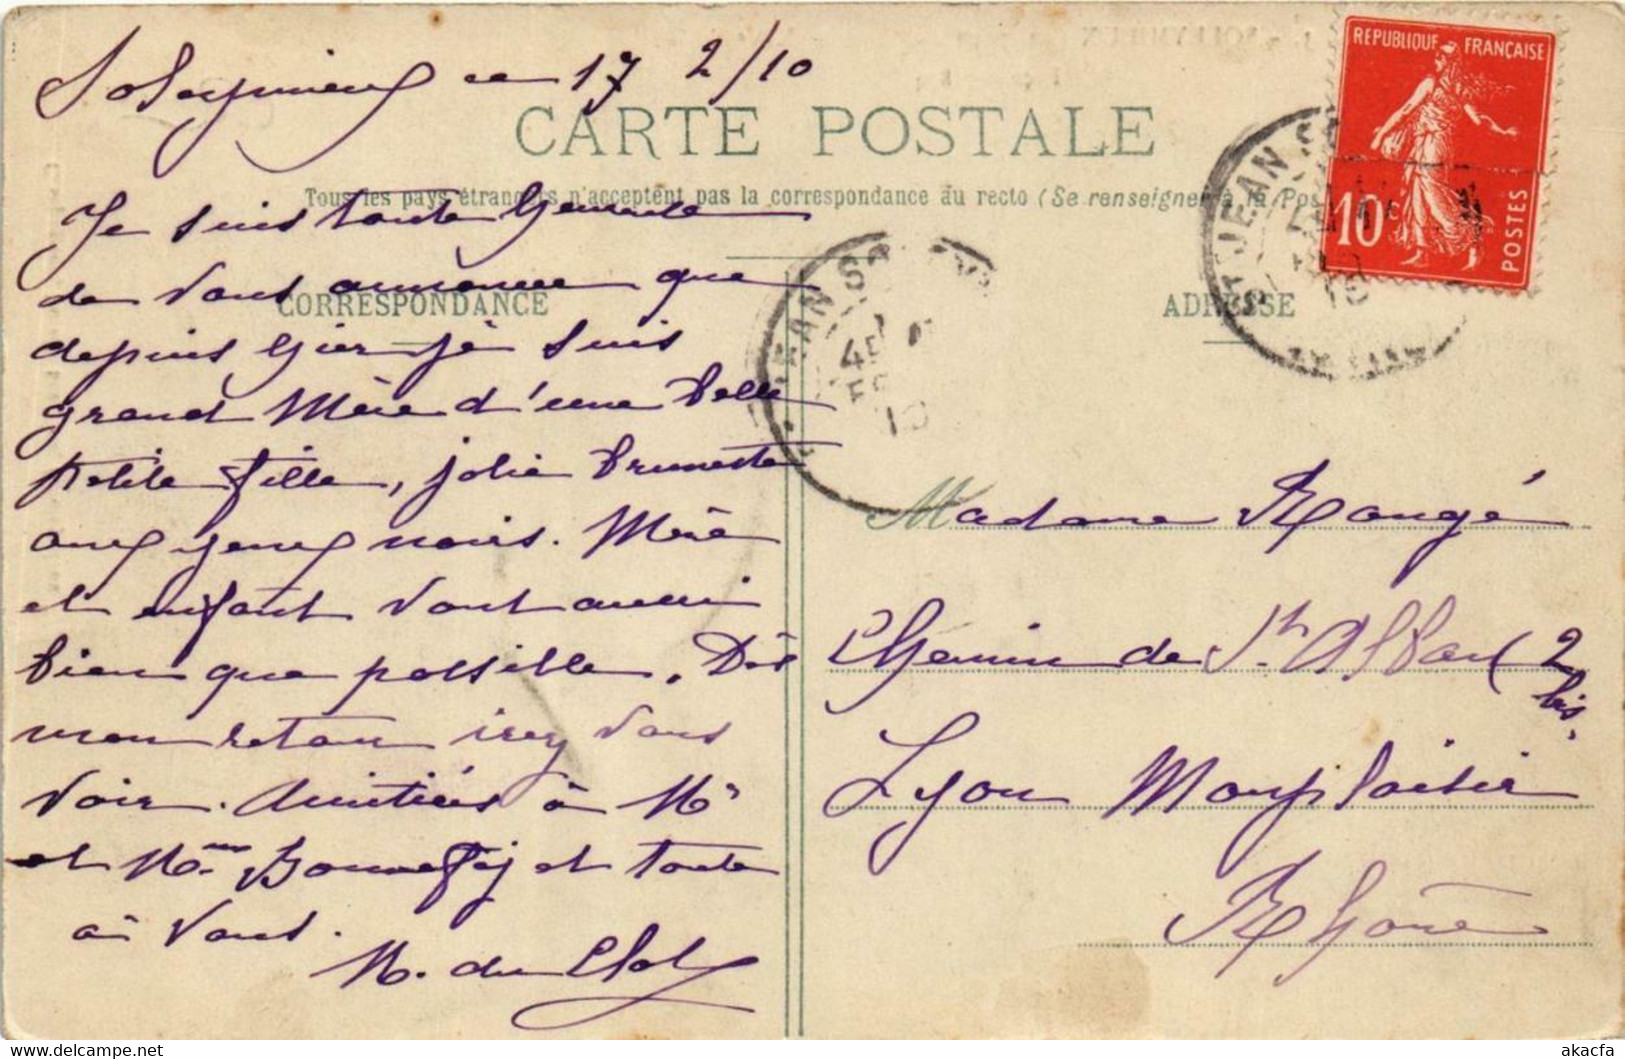 Soleymieux ce 17 2/10
CARTE POSTALE
Tous les pays étrangers n'acceptent pas la correspondance au recto (Se renseigner à la Pos
CORRESPONDANCE
ADRESSE
Je suis toute heureuse
de vous annoncer que
depuis hier je suis
grand Mère d'une belle
petite fille, jolie brunette
aux yeux noirs. Mère
et enfant vont aussi
bien que possible. Dès
mon retour irez vous
voir. Amitiés à Mr
et Mme Bonnefoy et toute
à vous.
M. du
RÉPUBLIQUE FRANÇAISE
10c
POSTES
ST JEAN SO
JEAN SO
10
Madame Rougé
Chemin de St. Alban (2
bis.
Lyon Monplaisir
Rhône
akacfa.com